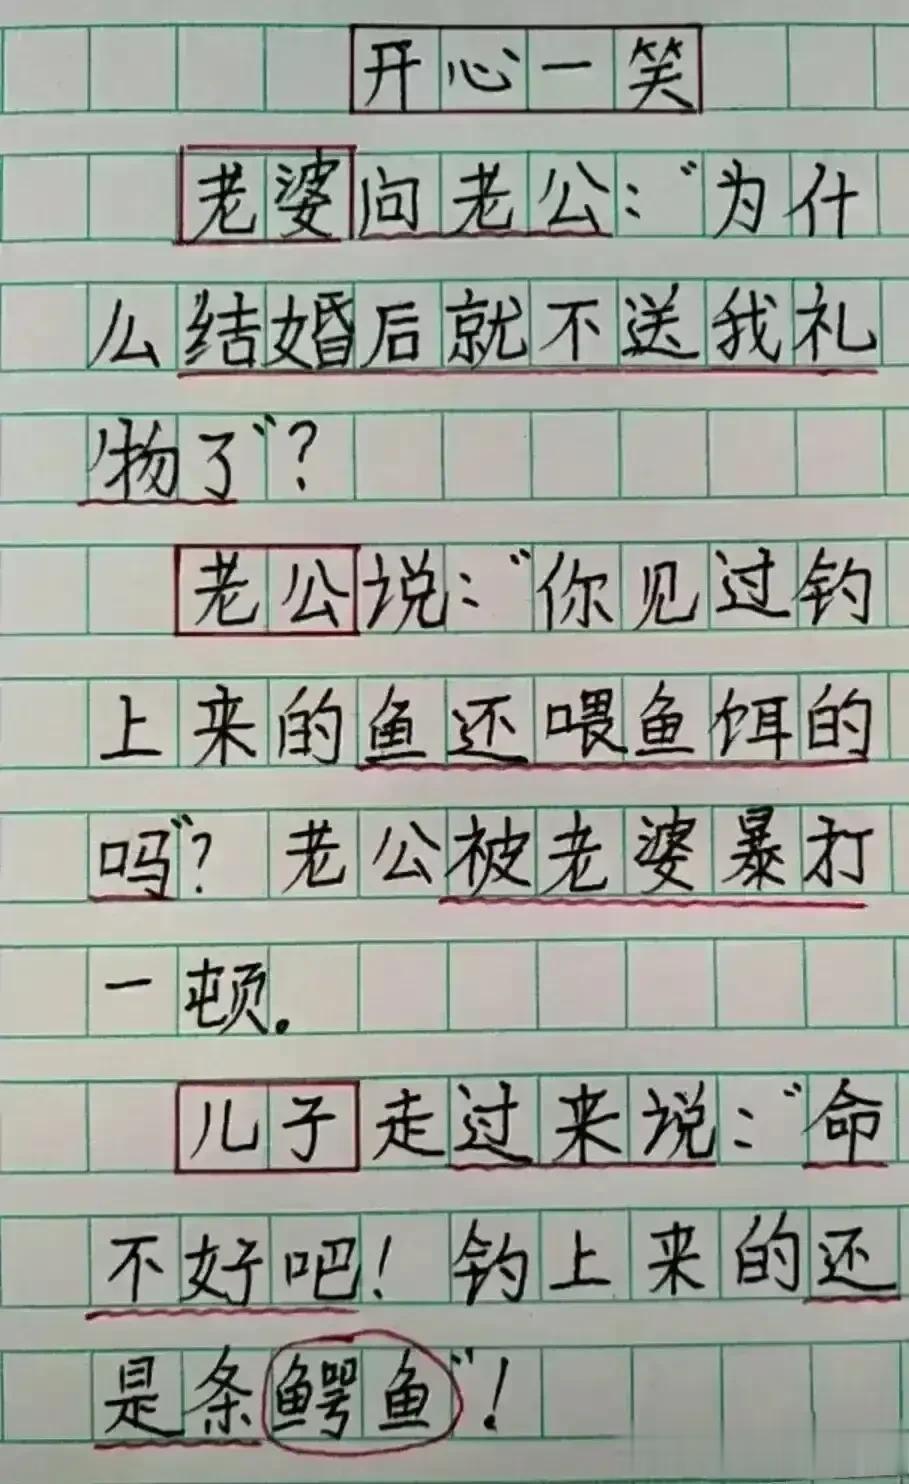 开心一笑
老婆问老公：“为什
么结婚后就不送我礼
物了”？
老公说：“你见过钓
上来的鱼还喂鱼饵的
吗”？老公被老婆暴打
一顿。
儿子走过来说：“命
不好吧！钓上来的还
是条鳄鱼”！